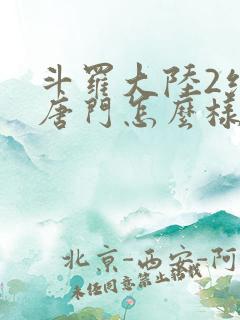 斗羅大陸2
唐門怎麼樣
北京-西安-阿
未经同意禁止转载